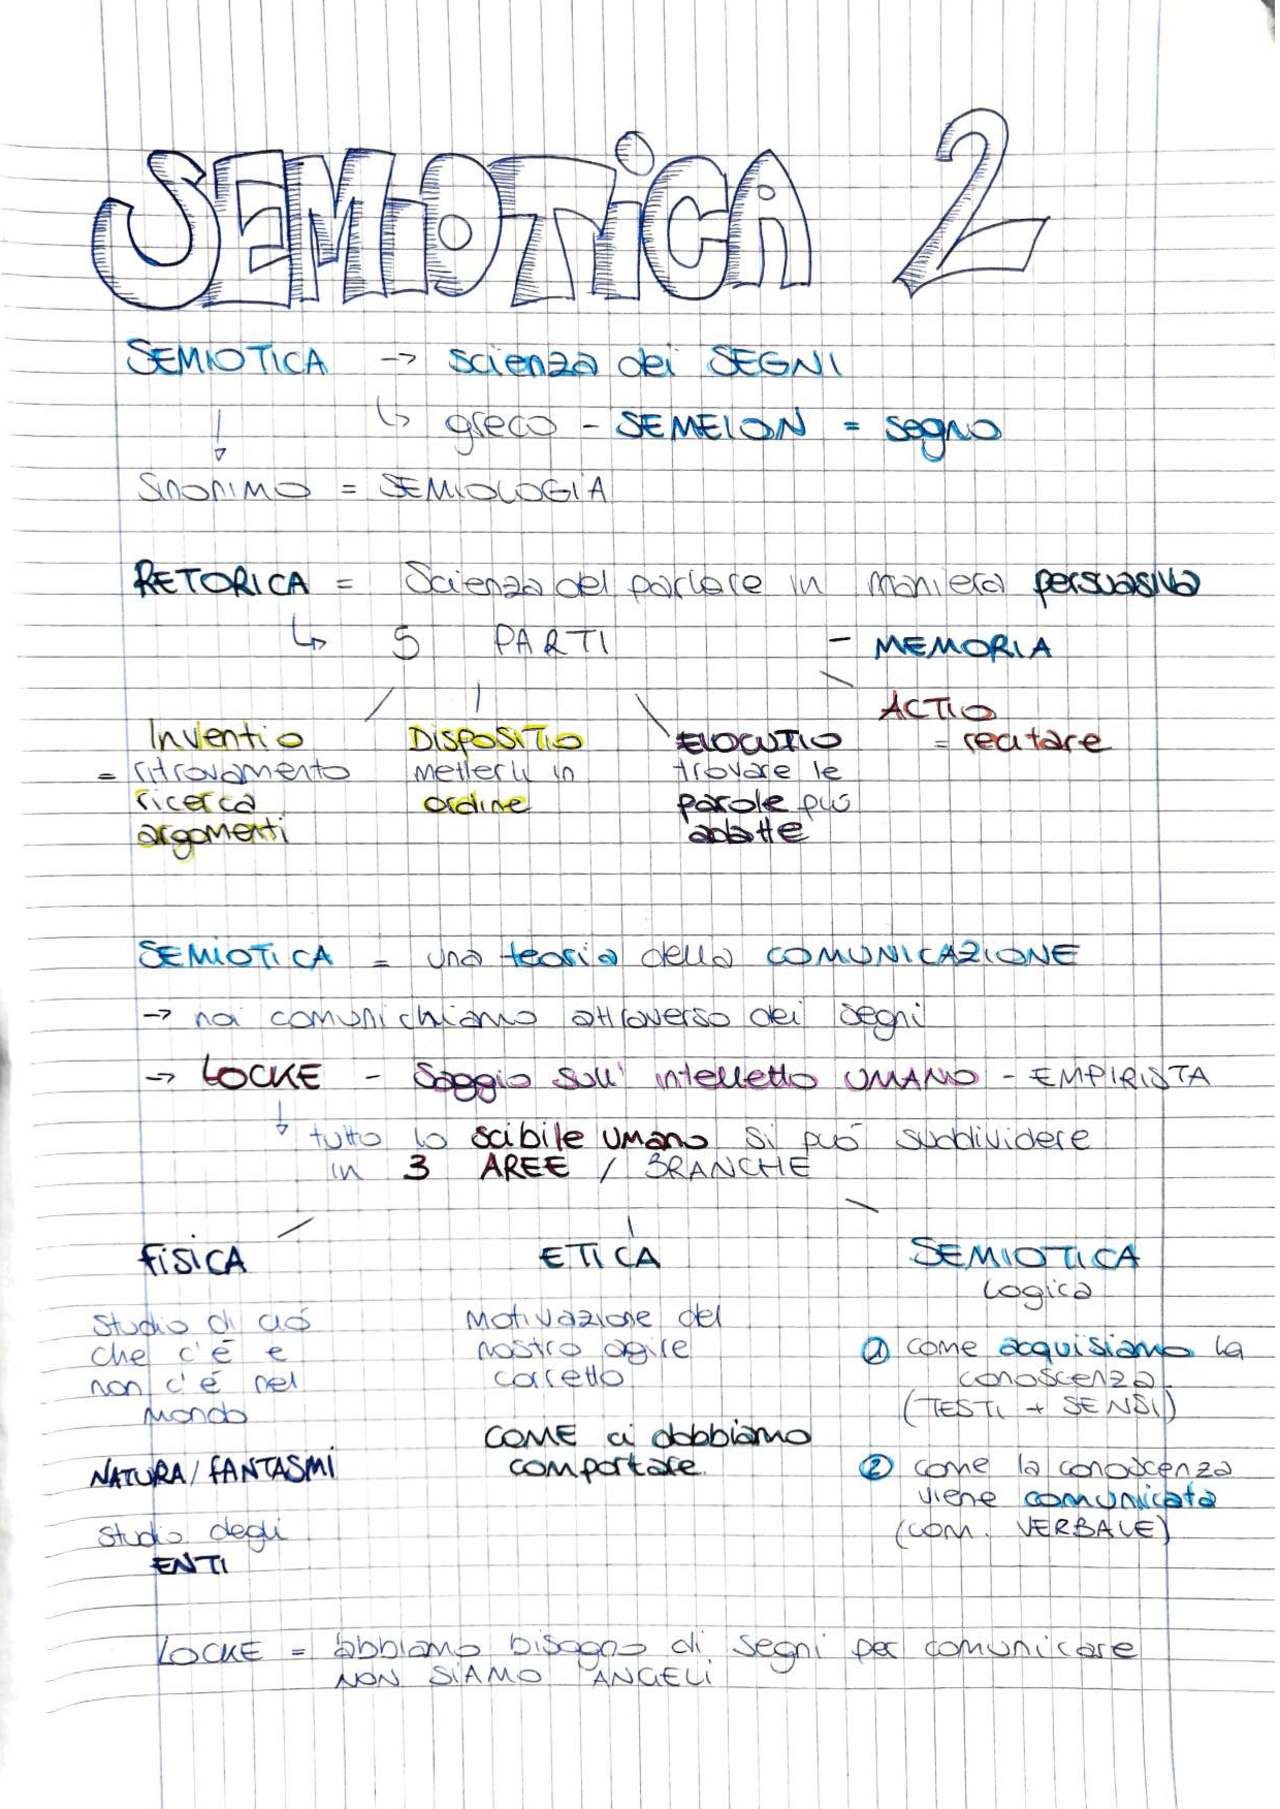 SEMIOTiCA 2
SEMIOTICA -> scienza dei SEGNI
↳ greco - SEMEION = segno
Sinonimo = SEMIOLOGIA
RETORICA = Scienza del parlare in maniera persuasiva
↳ 5 PARTI
- MEMORIA
ACTIO
= recitare
Inventio
= ritrovamento
ricerca
argomenti
DISPOSITIO
metterli in
ordine
ELOCUTIO
trovare le
parole più
adatte
SEMIOTICA = una teoria della COMUNICAZIONE
-> noi comunichiamo attraverso dei segni
-> LOCKE - Saggio sull' intelletto UMANO - EMPIRISTA
tutto lo scibile umano si può suddividere
in 3 AREE / BRANCHE
FISICA
studio di ciò
che c'è e
non c'è nel
mondo
NATURA/FANTASMI
studio degli
ENTI
ETICA
Motivazione del
nostro agire
corretto
COME ci dobbiamo
comportare.
SEMIOTICA
Logica
1 come acquisiamo la
conoscenza
(TESTI + SENSI)
2 come la conoscenza
viene comunicata
(COM. VERBALE)
LOCKE = abbiamo bisogno di segni per comunicare
NON SIAMO ANGELI